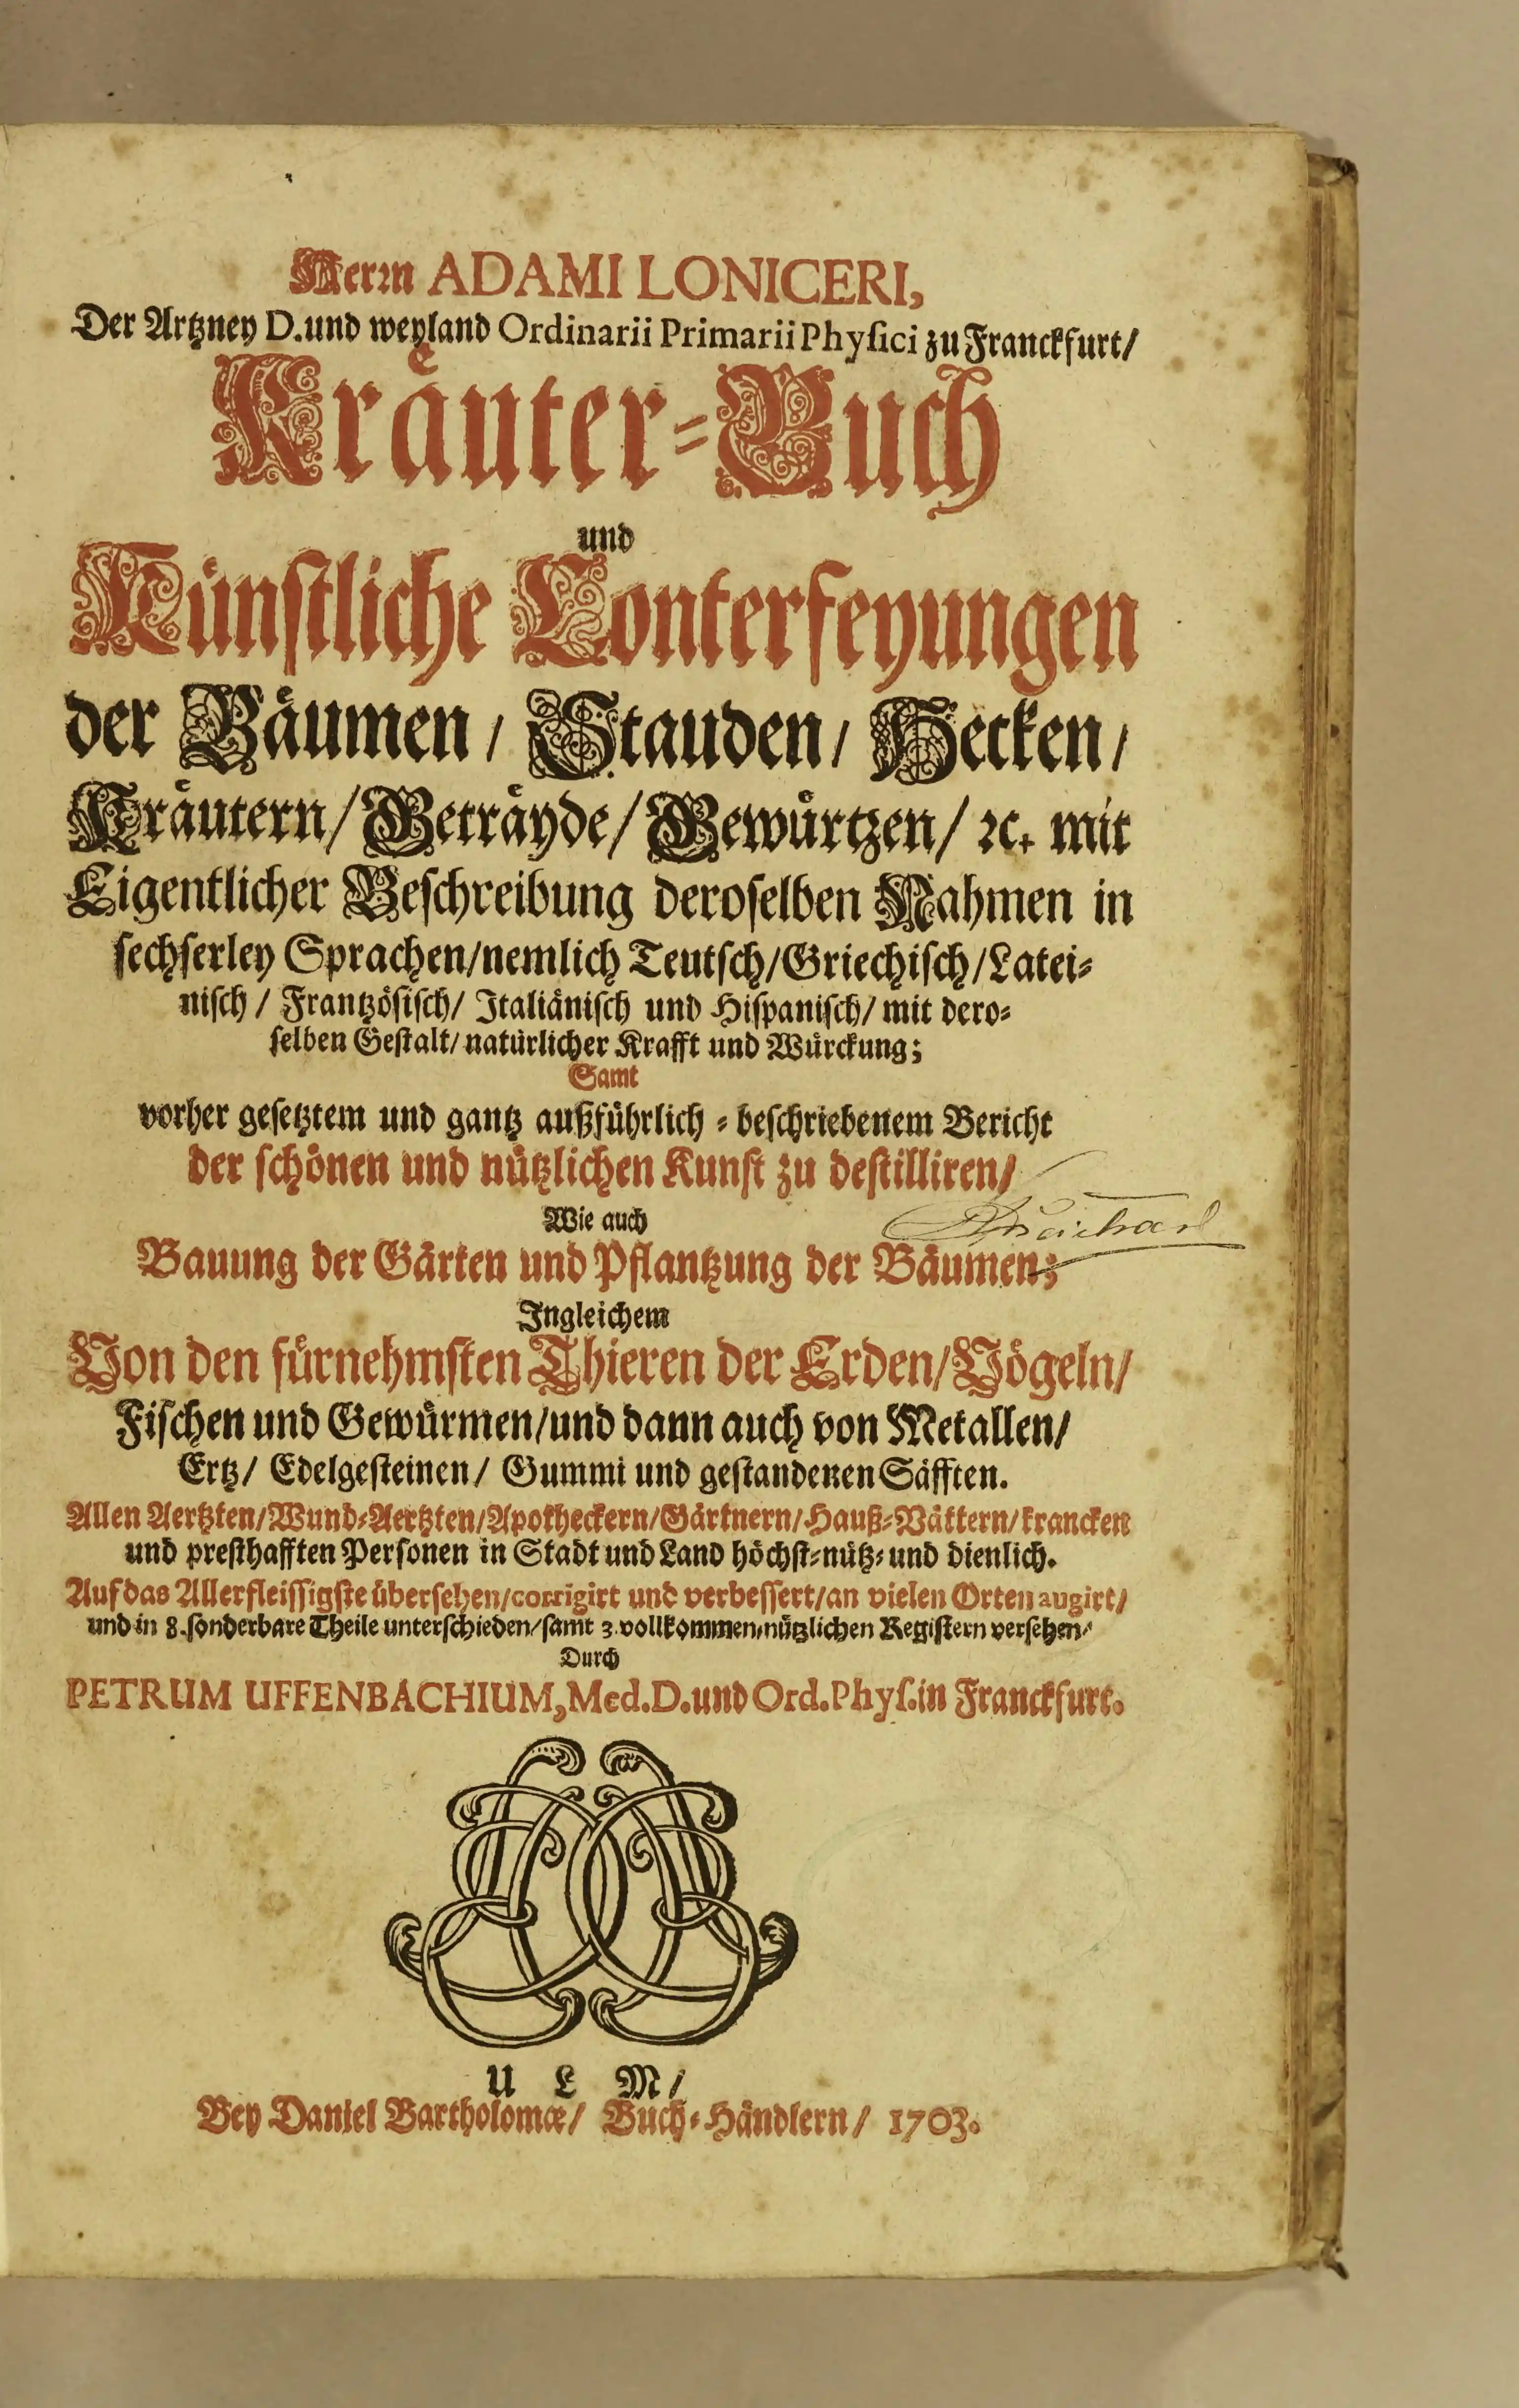 Herrn ADAMI LONICERI,
Der Artzney D. und weyland Ordinarii Primarii Physici zu Franckfurt/
Kräuter-Buch
und
Künstliche Conterfeyungen
der Bäumen/ Stauden/ Hecken/
Kräutern/ Geträyde/ Gewürtzen/ ꝛc. mit
Eigentlicher Beschreibung deroselben Nahmen in
sechserley Sprachen/ nemlich Teutsch/ Griechisch/ Latei-
nisch/ Frantzösisch/ Italiänisch und Hispanisch/ mit dero-
selben Gestalt/ natürlicher Krafft und Würckung;
Samt
vorher gesetztem und gantz außführlich-beschriebenem Bericht
der schönen und nützlichen Kunst zu destilliren/
Wie auch
Bauung der Gärten und Pflantzung der Bäumen;
Ingleichem
Von den fürnehmsten Thieren der Erden/ Vögeln/
Fischen und Gewürmen/ und dann auch von Metallen/
Ertz/ Edelgesteinen/ Gummi und gestandenen Säfften.
Allen Aertzten/ Wund-Aertzten/ Apotheckern/ Gärtnern/ Hauß-Vättern/ krancken
und presthafften Personen in Stadt und Land höchst-nütz- und dienlich.
Auf das Allerfleissigste übersehen/ corrigirt und verbessert/ an vielen Orten augirt/
und in 8. sonderbare Theile unterschieden/ samt 3. vollkommen/ nützlichen Registern versehen/
Durch
PETRUM UFFENBACHIUM, Med. D. und Ord. Phys. in Franckfurt.
ULM/
Bey Daniel Bartholomæ/ Buch-Händlern/ 1703.